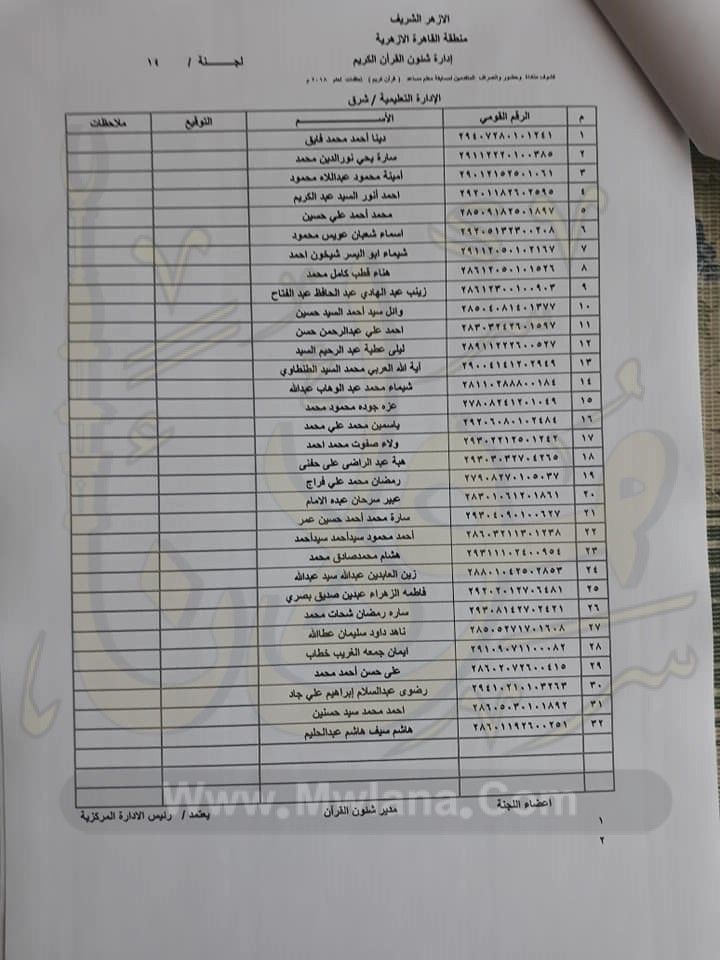 الازهر الشريف
منطقة القاهرة الازهرية
إدارة شئون القرأن الكريم
لجـــنـــة / ١٤
كشوف مناداة وحضور وانصراف المتقدمين لمسابقة معلم مساعد ( قرآن كريم ) تعاقدات لعام ٢٠١٨ م
الإدارة التعليمية / شرق
م الرقم القومي الأســـــم التوقيع ملاحظات
١ ٢٩٤٠٧٢٨٠١٠١٢٤١ دينا أحمد محمد فايق
٢ ٢٩١١٢٢٢٠١٠٠٣٨٥ سارة يحي نورالدين محمد
٣ ٢٩٠١٢١٥٢٥٠١٠٦١ أمينة محمود عبداللاه محمود
٤ ٢٩٢٠١١٨٢٦٠٢٥٩٥ احمد أنور السيد عبد الكريم
٥ ٢٨٥٠٩١٨٢٥٠١٨٩٧ محمد أحمد علي حسين
٦ ٢٩٢٠٥١٣٢٣٠٠٢٠٨ اسماء شعبان عويس محمود
٧ ٢٩١١٢٠٥٠١٠٢١٦٧ شيماء ابو اليسر شيخون احمد
٨ ٢٨٦١٢٠٥٠١٠١٥٢٦ هناء قطب كامل محمد
٩ ٢٨٦١٢٣٠٠١٠٠٩٠٣ زينب عبد الهادي عبد الحافظ عبد الفتاح
١٠ ٢٨٥٠٤٠٨١٤٠١٣٧٧ وائل سيد أحمد السيد حسين
١١ ٢٨٣٠٣٢٤٢٦٠١٥٩٧ احمد علي عبدالرحمن حسن
١٢ ٢٨٩١١٢٢٢٦٠٠٥٢٧ ليلى عطية عبد الرحيم السيد
١٣ ٢٩٠٠٤١٤١٢٠٢٩٤٩ آية الله العربي محمد السيد الطنطاوي
١٤ ٢٨١١٠٢٨٨٨٠٠١٨٤ شيماء محمد عبد الوهاب عبدالله
١٥ ٢٧٨٠٨٢٤١٢٠١٠٤٩ عزه جوده محمود محمد
١٦ ٢٩٢٠٦٠٨٠١٠٢٤٨٤ ياسمين محمد علي محمد
١٧ ٢٩٣٠٢٢١٢٥٠١٢٤٢ ولاء صفوت محمد احمد
١٨ ٢٩٣٠٣٠٣٢٧٠٤٢٦٥ هبة عبد الراضى على حفنى
١٩ ٢٧٩٠٨٢٧٠١٠٥٠٣٧ رمضان محمد علي فراج
٢٠ ٢٨٣٠١٠٦١٢٠١٨٦١ عبير سرحان عبده الامام
٢١ ٢٩٣٠٤٠٩٠١٠٠٦٢٧ سارة محمد أحمد حسين عمر
٢٢ ٢٨٦٠٣٢١١٣٠١٢٣٨ أحمد محمود سيدأحمد سيدأحمد
٢٣ ٢٩٣١١١٠٢٤٠٠٩٥٤ هشام محمدصادق محمد
٢٤ ٢٨٨٠١٠٤٢٥٠٢٨٥٣ زين العابدين عبدالله سيد عبدالله
٢٥ ٢٩٢٠٢٠١٢٧٠٦٤٨١ فاطمه الزهراء عبدين صديق بصري
٢٦ ٢٩٣٠٨١٤٢٧٠٢٤٢١ ساره رمضان شحات محمد
٢٧ ٢٨٥٠٥٢٧١٧٠١٦٠٨ ناهد داود سليمان عطاالله
٢٨ ٢٩١٠٩٠٧١١٠٠٠٨٢ ايمان جمعه الغريب خطاب
٢٩ ٢٨٦٠٢٠٧٢٦٠٠٤١٥ على حسن أحمد محمد
٣٠ ٢٩٤١٠٢١٠١٠٣٢٦٣ رضوى عبدالسلام إبراهيم علي جاد
٣١ ٢٨٦٠٥٠٣٠١٠١٨٩٢ احمد محمد سيد حسنين
٣٢ ٢٨٦٠١١٩٢٦٠٠٢٥١ هاشم سيف هاشم عبدالحليم
Www.Mwlana.Com
اعضاء اللجنة مدير شئون القرأن يعتمد / رئيس الادارة المركزية
١
٢